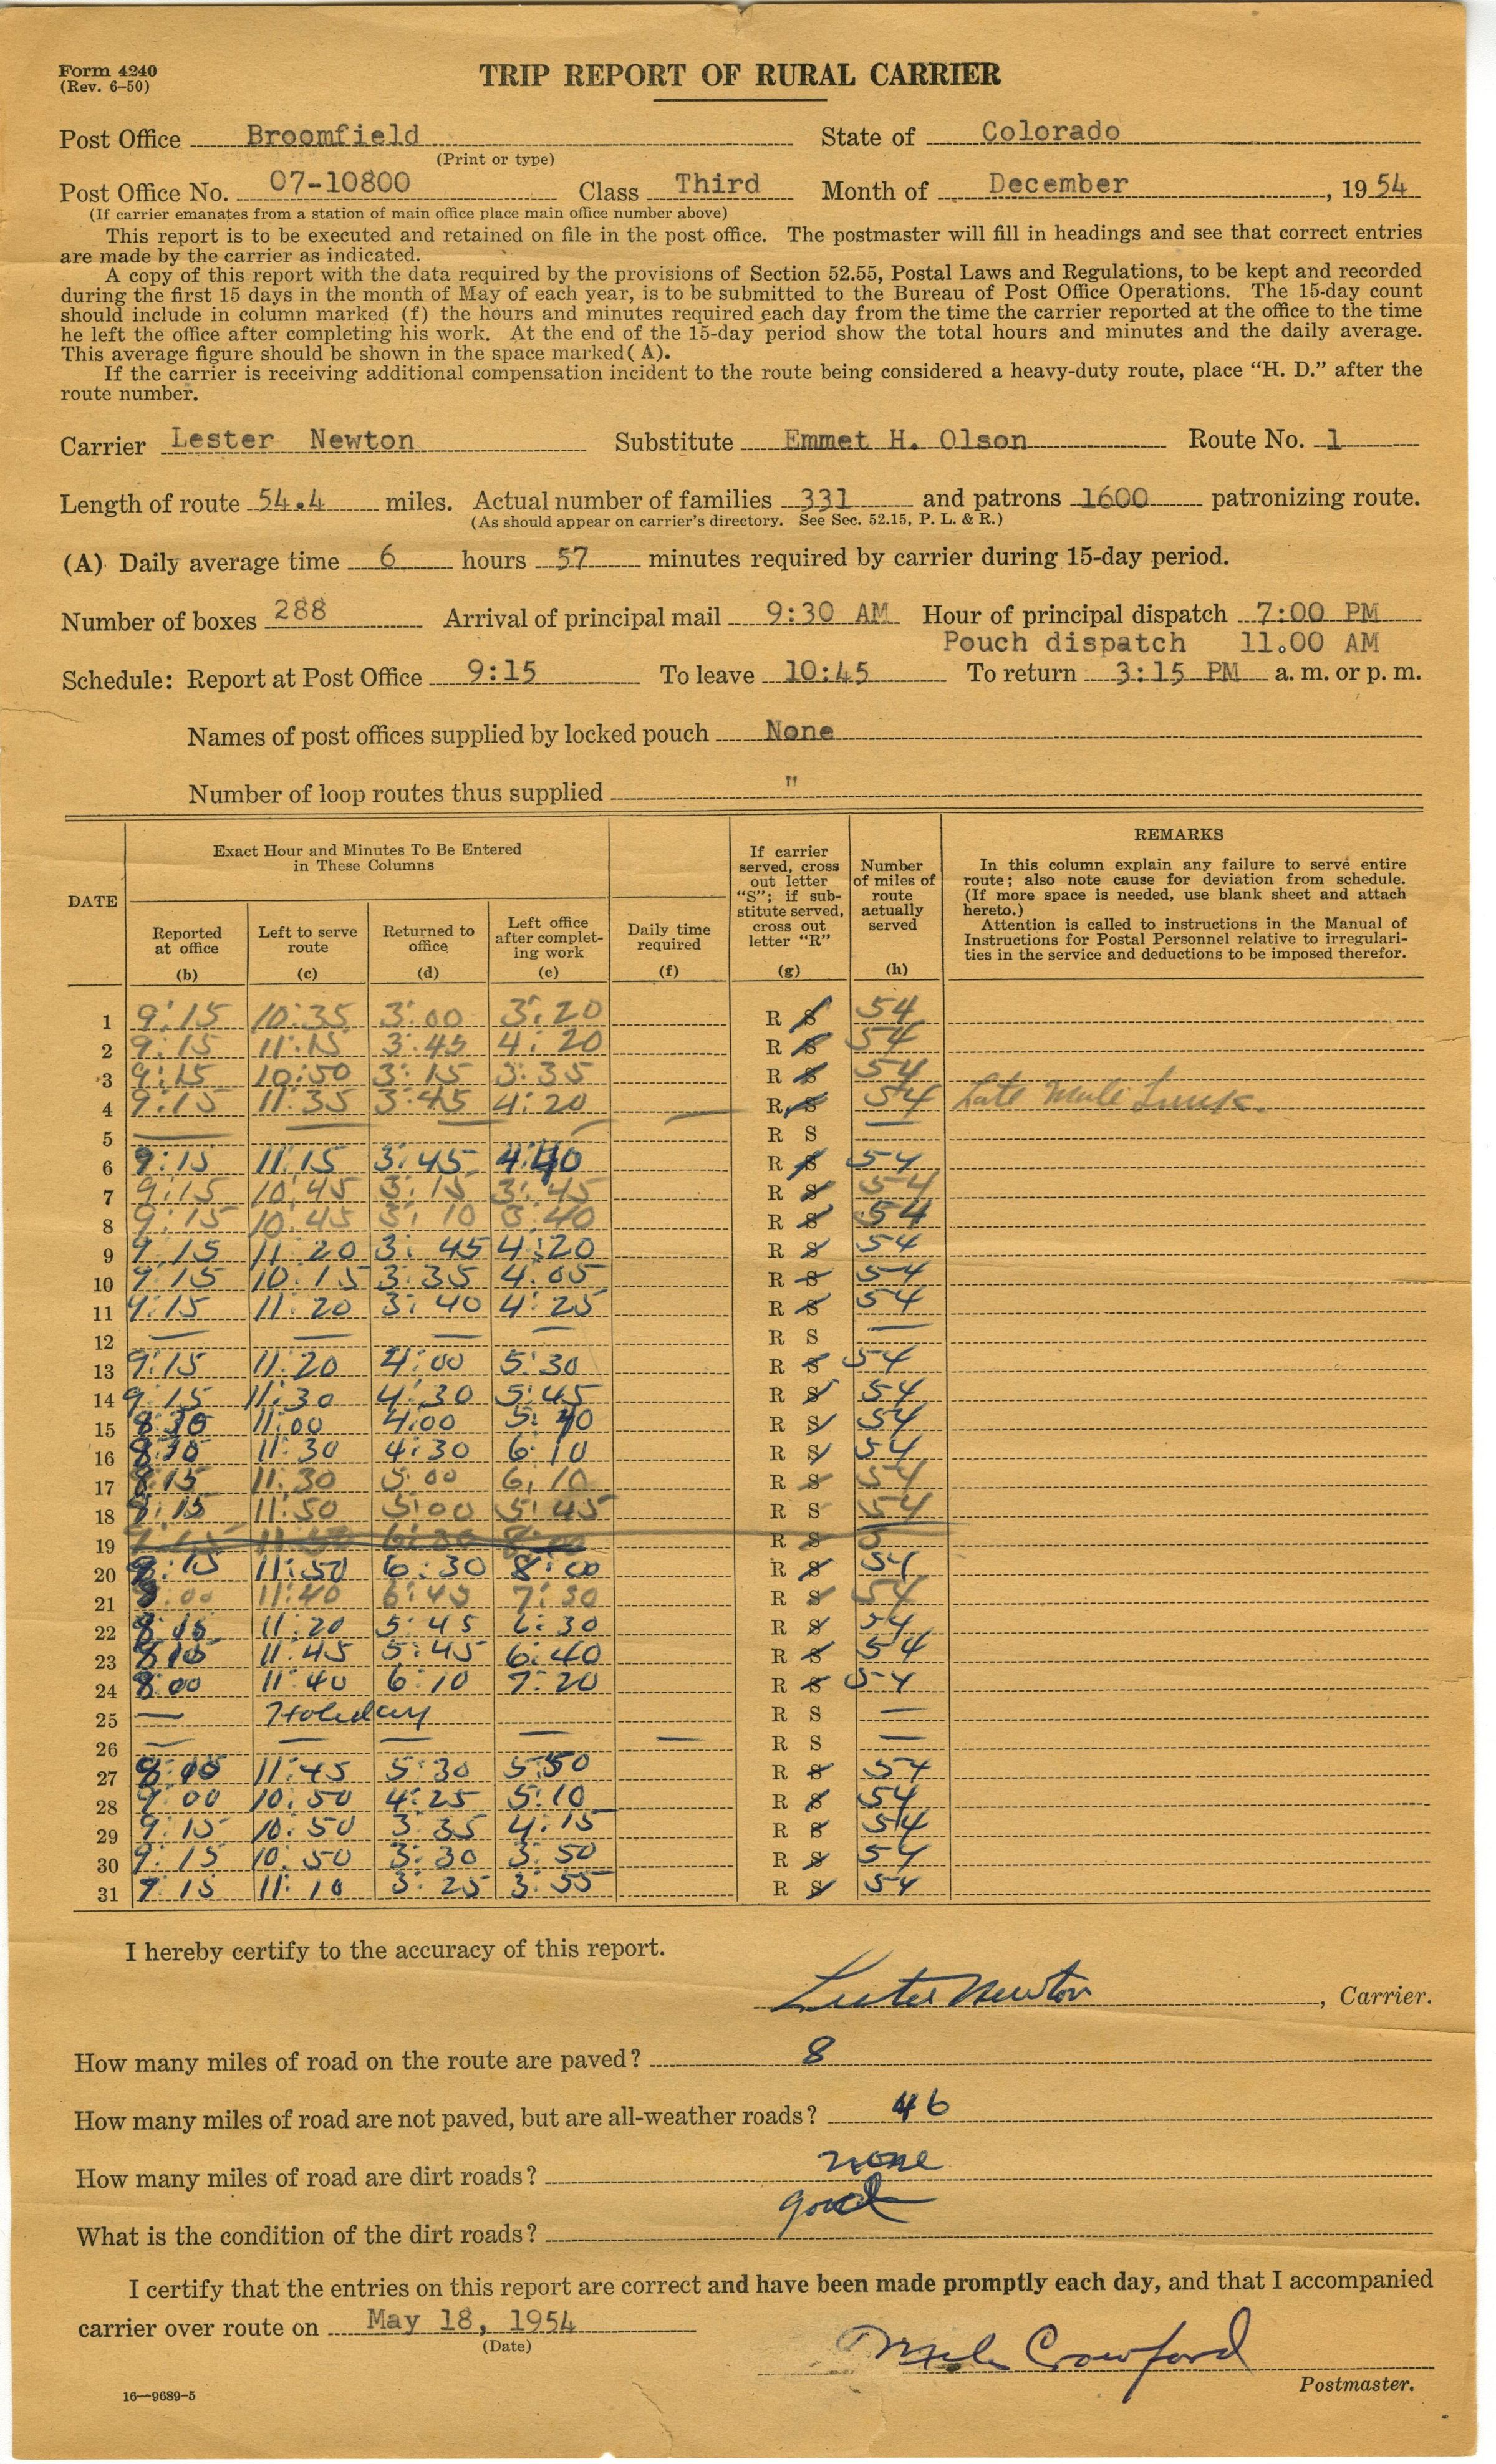 Form 4240
(Rev. 6-50)
TRIP REPORT OF RURAL CARRIER
Post Office Broomfield State of Colorado
(Print or type)
Post Office No. 07-10800 Class Third Month of December, 1954
(If carrier emanates from a station of main office place main office number above)
This report is to be executed and retained on file in the post office. The postmaster will fill in headings and see that correct entries
are made by the carrier as indicated.
A copy of this report with the data required by the provisions of Section 52.55, Postal Laws and Regulations, to be kept and recorded
during the first 15 days in the month of May of each year, is to be submitted to the Bureau of Post Office Operations. The 15-day count
should include in column marked (f) the hours and minutes required each day from the time the carrier reported at the office to the time
he left the office after completing his work. At the end of the 15-day period show the total hours and minutes and the daily average.
This average figure should be shown in the space marked( A).
If the carrier is receiving additional compensation incident to the route being considered a heavy-duty route, place “H. D.” after the
route number.
Carrier Lester Newton Substitute Emmet H. Olson Route No. 1
Length of route 54.4 miles. Actual number of families 331 and patrons 1600 patronizing route.
(As should appear on carrier's directory. See Sec. 52.15, P. L. & R.)
(A) Daily average time 6 hours 57 minutes required by carrier during 15-day period.
Number of boxes 288 Arrival of principal mail 9:30 AM Hour of principal dispatch 7:00 PM
Pouch dispatch 11.00 AM
Schedule: Report at Post Office 9:15 To leave 10:45 To return 3:15 PM a. m. or p. m.
Names of post offices supplied by locked pouch None
Number of loop routes thus supplied "
DATE
Exact Hour and Minutes To Be Entered
in These Columns
Reported
at office
(b)
Left to serve
route
(c)
Returned to
office
(d)
Left office
after complet-
ing work
(e)
Daily time
required
(f)
If carrier
served, cross
out letter
“S”; if sub-
stitute served,
cross out
letter “R”
(g)
Number
of miles of
route
actually
served
(h)
REMARKS
In this column explain any failure to serve entire
route; also note cause for deviation from schedule.
(If more space is needed, use blank sheet and attach
hereto.)
Attention is called to instructions in the Manual of
Instructions for Postal Personnel relative to irregulari-
ties in the service and deductions to be imposed therefor.
1 9:15 10:35 3:00 3:20 R S 54
2 9:15 11:15 3:45 4:20 R S 54
3 9:15 10:50 3:15 3:35 R S 54
4 9:15 11:35 3:45 4:20 — R S 54 Late Male Truck.
5 — — — — R S —
6 9:15 11:15 3:45 4:40 R S 54
7 9:15 10:45 3:15 3:45 R S 54
8 9:15 10:45 3:10 3:40 R S 54
9 9:15 11:20 3:45 4:20 R S 54
10 9:15 10:15 3:35 4:05 R S 54
11 9:15 11:20 3:40 4:25 R S 54
12 — — — — R S —
13 9:15 11:20 4:00 5:30 R S 54
14 9:15 11:30 4:30 5:45 R S 54
15 8:30 11:00 4:00 5:40 R S 54
16 8:30 11:30 4:30 6:10 R S 54
17 8:15 11:30 5:00 6:10 R S 54
18 8:15 11:50 5:00 5:45 R S 54
19 11:50 6:30 8:00 R S 5
20 8:15 11:50 6:30 8:00 R S 54
21 8:00 11:40 6:45 7:30 R S 54
22 8:15 11:20 5:45 6:30 R S 54
23 8:10 11:45 5:45 6:40 R S 54
24 8:00 11:40 6:10 7:20 R S 54
25 — Holiday — R S —
26 — — — — — R S —
27 8:15 11:45 5:30 5:50 R S 54
28 9:00 10:50 4:25 5:10 R S 54
29 9:15 10:50 3:35 4:15 R S 54
30 9:15 10:50 3:30 3:50 R S 54
31 9:15 11:10 3:25 3:55 R S 54
I hereby certify to the accuracy of this report.
Lester Newton, Carrier.
How many miles of road on the route are paved? 8
How many miles of road are not paved, but are all-weather roads? 46
How many miles of road are dirt roads? none
What is the condition of the dirt roads? good
I certify that the entries on this report are correct and have been made promptly each day, and that I accompanied
carrier over route on May 18, 1954
(Date)
Crawford
Postmaster.
16—9689-5